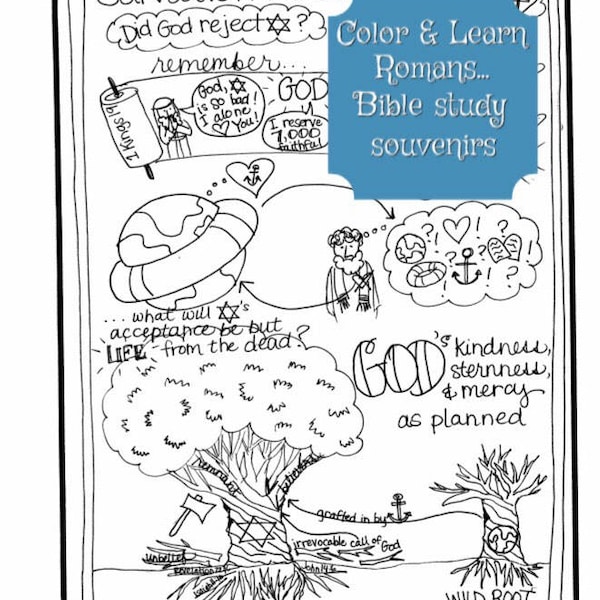 Did God reject ✡?
remember...
1 Kings 19
God, ✡
is so bad!
I alone
♡ You!
GOD
I reserve
7,000
faithful!
Color & Learn
Romans...
Bible study
souvenirs
...what will ✡'s
acceptance be but
LIFE from the dead?
GOD's kindness,
sternness,
& mercy
as planned
remnant
believers
grafted in by
irrevocable call of God
unbelief
WILD ROOT